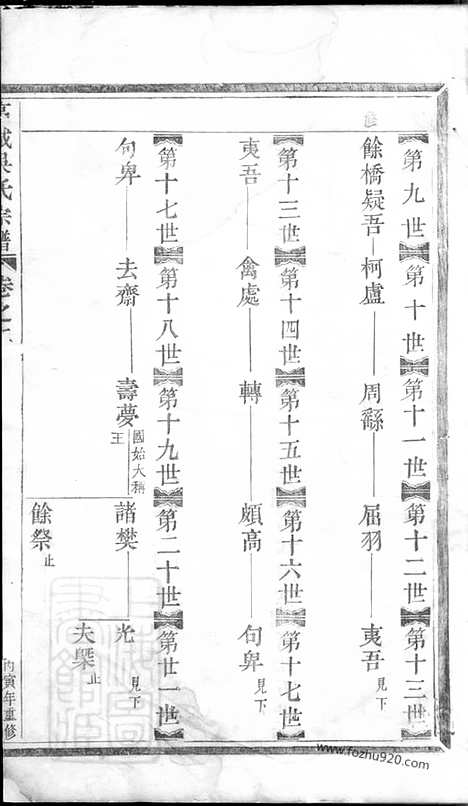 第九世 第十世 第十一世 第十二世 第十三世
餘橋疑吾 柯盧 周繇 屈羽 夷吾 見下
第十三世 第十四世 第十五世 第十六世 第十七世
夷吾 禽處 轉 頗高 句卑 見下
第十七世 第十八世 第十九世 第二十世 第廿一世
句卑 去齋 壽夢 國始大稱王 諸樊 光 見下
夫槩 止
餘祭 止
吳氏宗譜 卷之
丙寅年重修
www.fozhu920.com